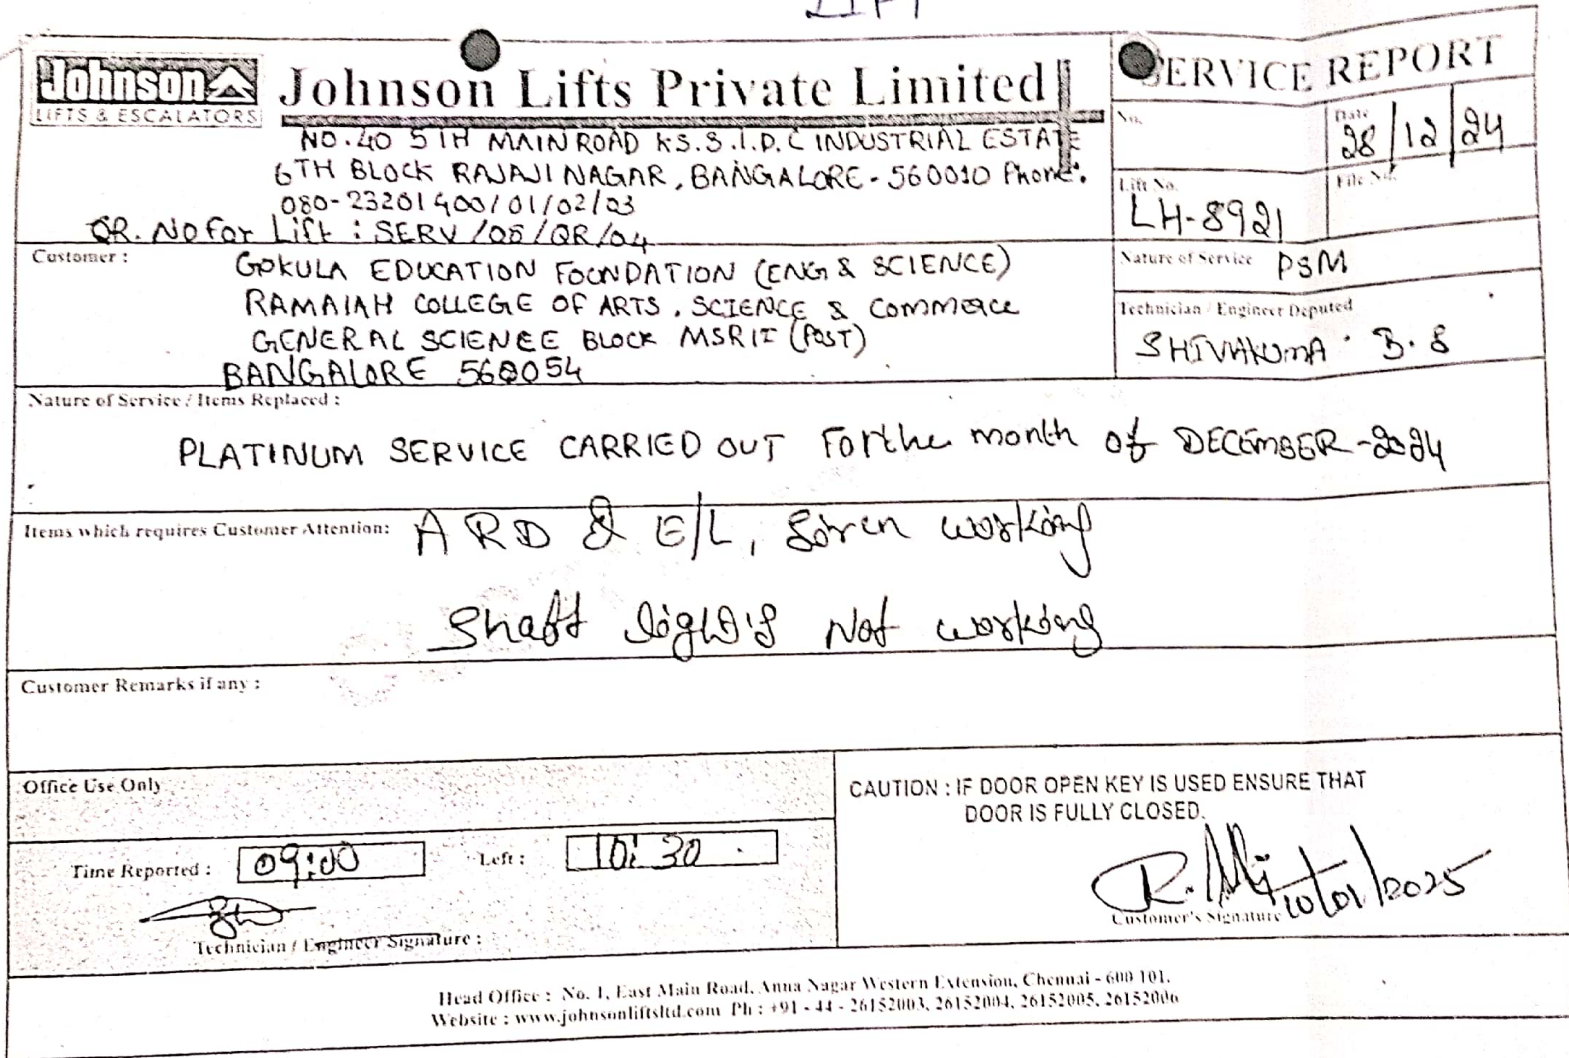 LIFT
Johnson
LIFTS & ESCALATORS
Johnson Lifts Private Limited
NO.40 5TH MAIN ROAD K.S.S.I.D.C INDUSTRIAL ESTATE
6TH BLOCK RAJAJI NAGAR, BANGALORE - 560010 Phone:
080-23201400/01/02/03
QR. No For Lift : SERV/05/QR/04
SERVICE REPORT
No.
Date
28/12/24
Lift No.
LH-8921
File No.
Customer :
GOKULA EDUCATION FOUNDATION (ENG & SCIENCE)
RAMAIAH COLLEGE OF ARTS, SCIENCE & Commerce
GENERAL SCIENCE BLOCK MSRIT (POST)
BANGALORE 560054
Nature of Service PSM
Technician / Engineer Deputed
SHIVAKUMA. B.S
Nature of Service / Items Replaced :
PLATINUM SERVICE CARRIED OUT For the month of DECEMBER-2024
Items which requires Customer Attention: ARD & E/L, Siren working
Shaft light's Not working
Customer Remarks if any :
Office Use Only
Time Reported : 09:00 Left : 10:30
Technician / Engineer Signature :
CAUTION : IF DOOR OPEN KEY IS USED ENSURE THAT
DOOR IS FULLY CLOSED.
10/01/2025
Customer's Signature
Head Office : No. 1, East Main Road, Anna Nagar Western Extension, Chennai - 600 101.
Website : www.johnsonliftsltd.com Ph : +91 - 44 - 26152003, 26152004, 26152005, 26152006